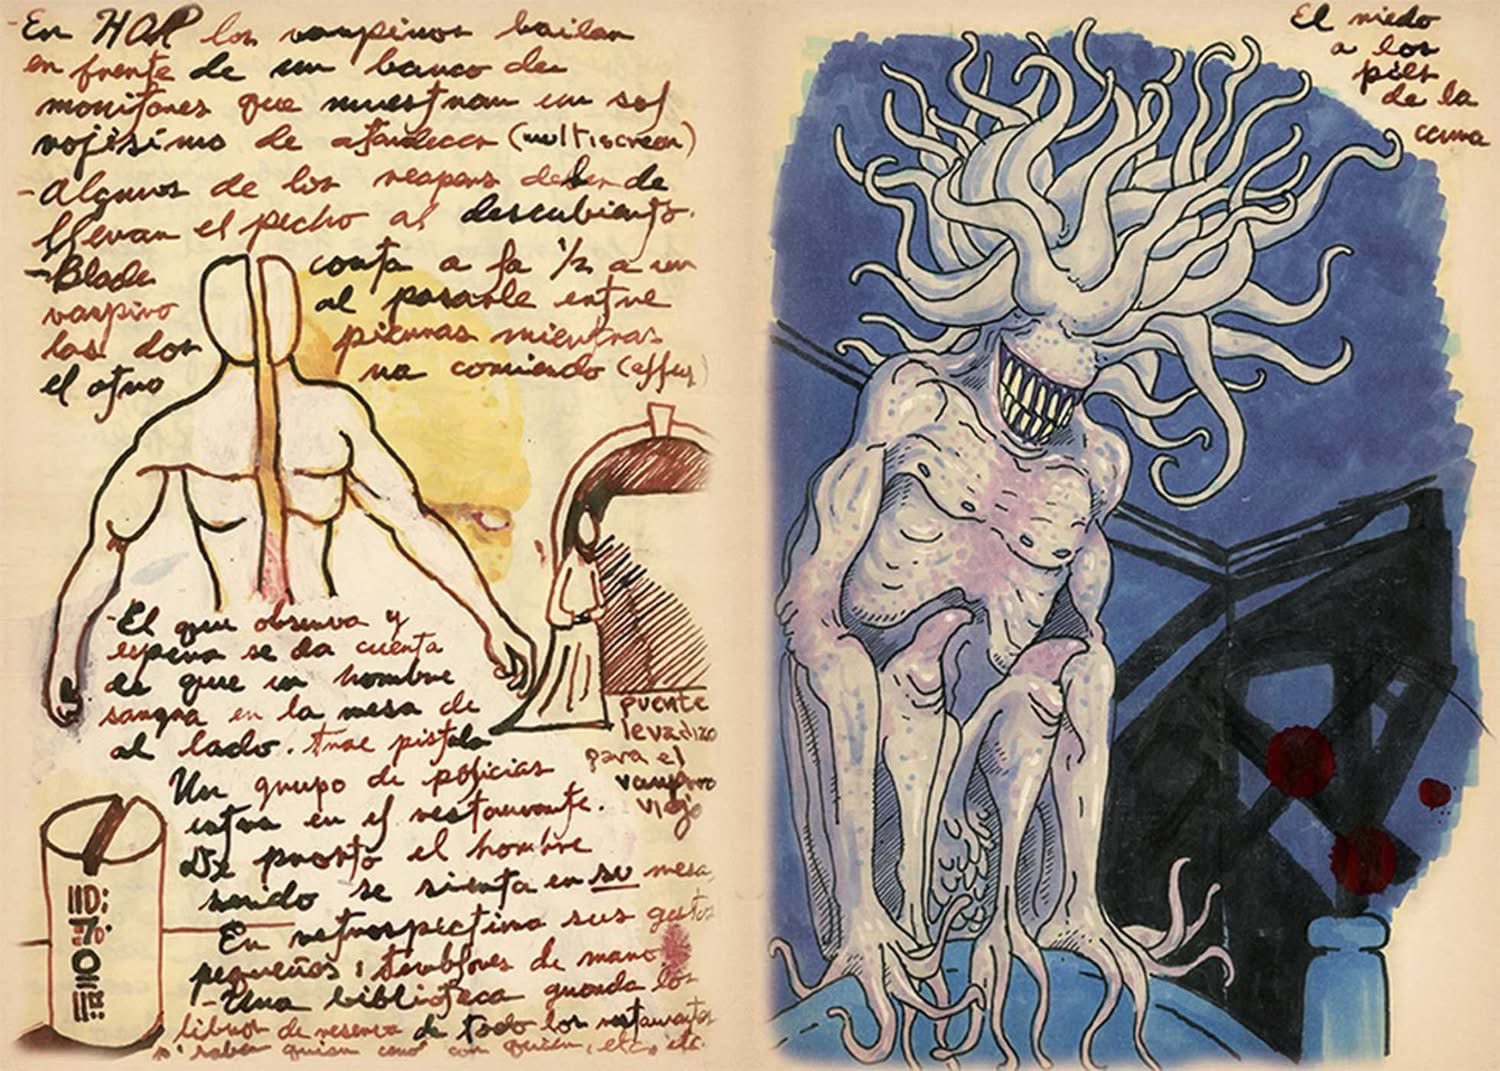 - En HOP los vampiros bailan
en frente de un banco de
monitores que muestran un sol
rojísimo de atardecer (multiscreen)
- Algunos de los reapers deben de
llevan el pecho al descubierto.
- Blade corta a la 1/2 a un
vampiro al pasarle entre
las dos piernas mientras
el otro va comiendo (
- El que observa y
espera se da cuenta
de que un hombre
sangra en la mesa de
al lado. trae pistola
Un grupo de policias
entra en el restaurante.
De pronto el hombre
se sienta en su mesa,
En retrospectiva sus gestos
pequeños, temblores de mano
- Una biblioteca guarda los
libros de reserva de todo los restaurantes
saber quien cenó con quien, etc, etc.
puente
levadizo
para el
vampiro
viejo
El miedo
a los
pies
de la
cama